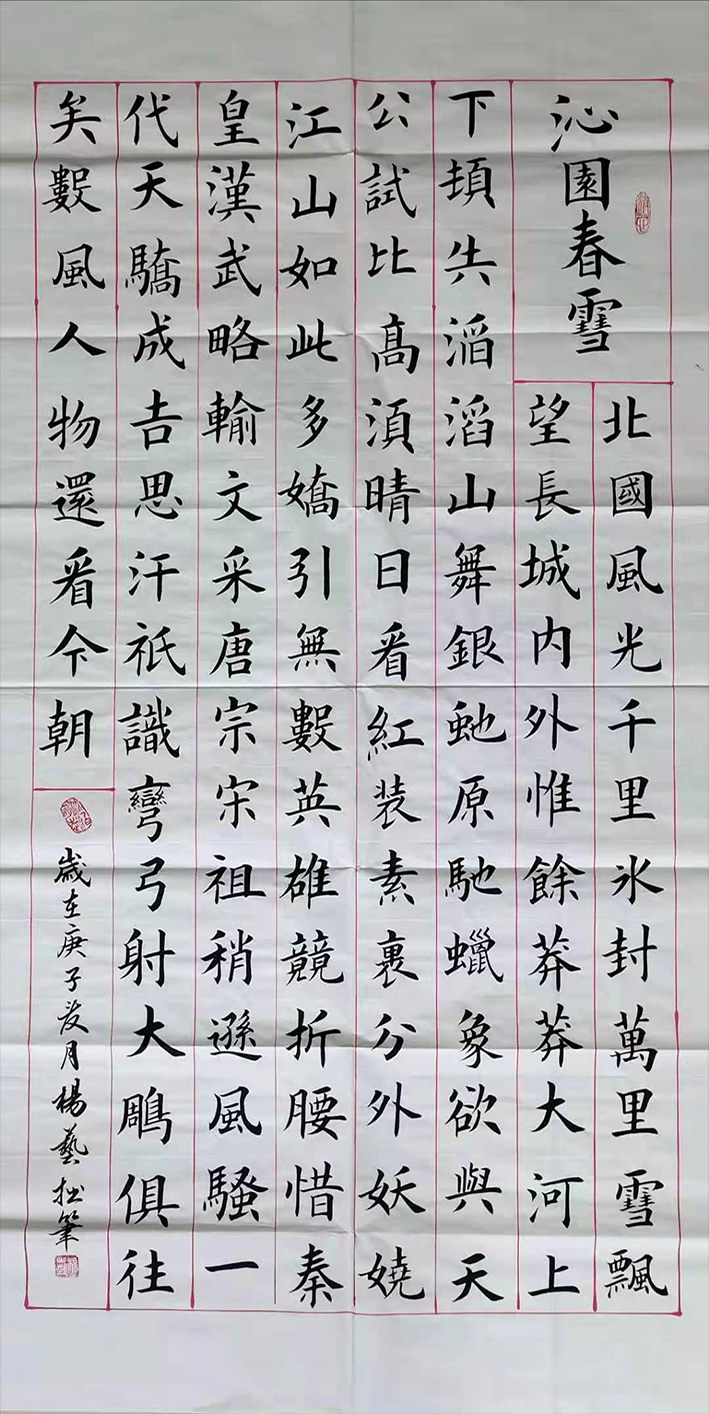 沁園春雪
北國風光千里氷封萬里雪飄
望長城内外惟餘莽莽大河上
下頓失滔滔山舞銀虵原馳蠟象欲與天
公試比高須晴日看紅装素裹分外妖嬈
江山如此多嬌引無數英雄競折腰惜秦
皇漢武略輸文采唐宗宋祖稍遜風騷一
代天驕成吉思汗祇識彎弓射大鵰俱往
矣數風人物還看今朝
歲在庚子月楊藝松筆